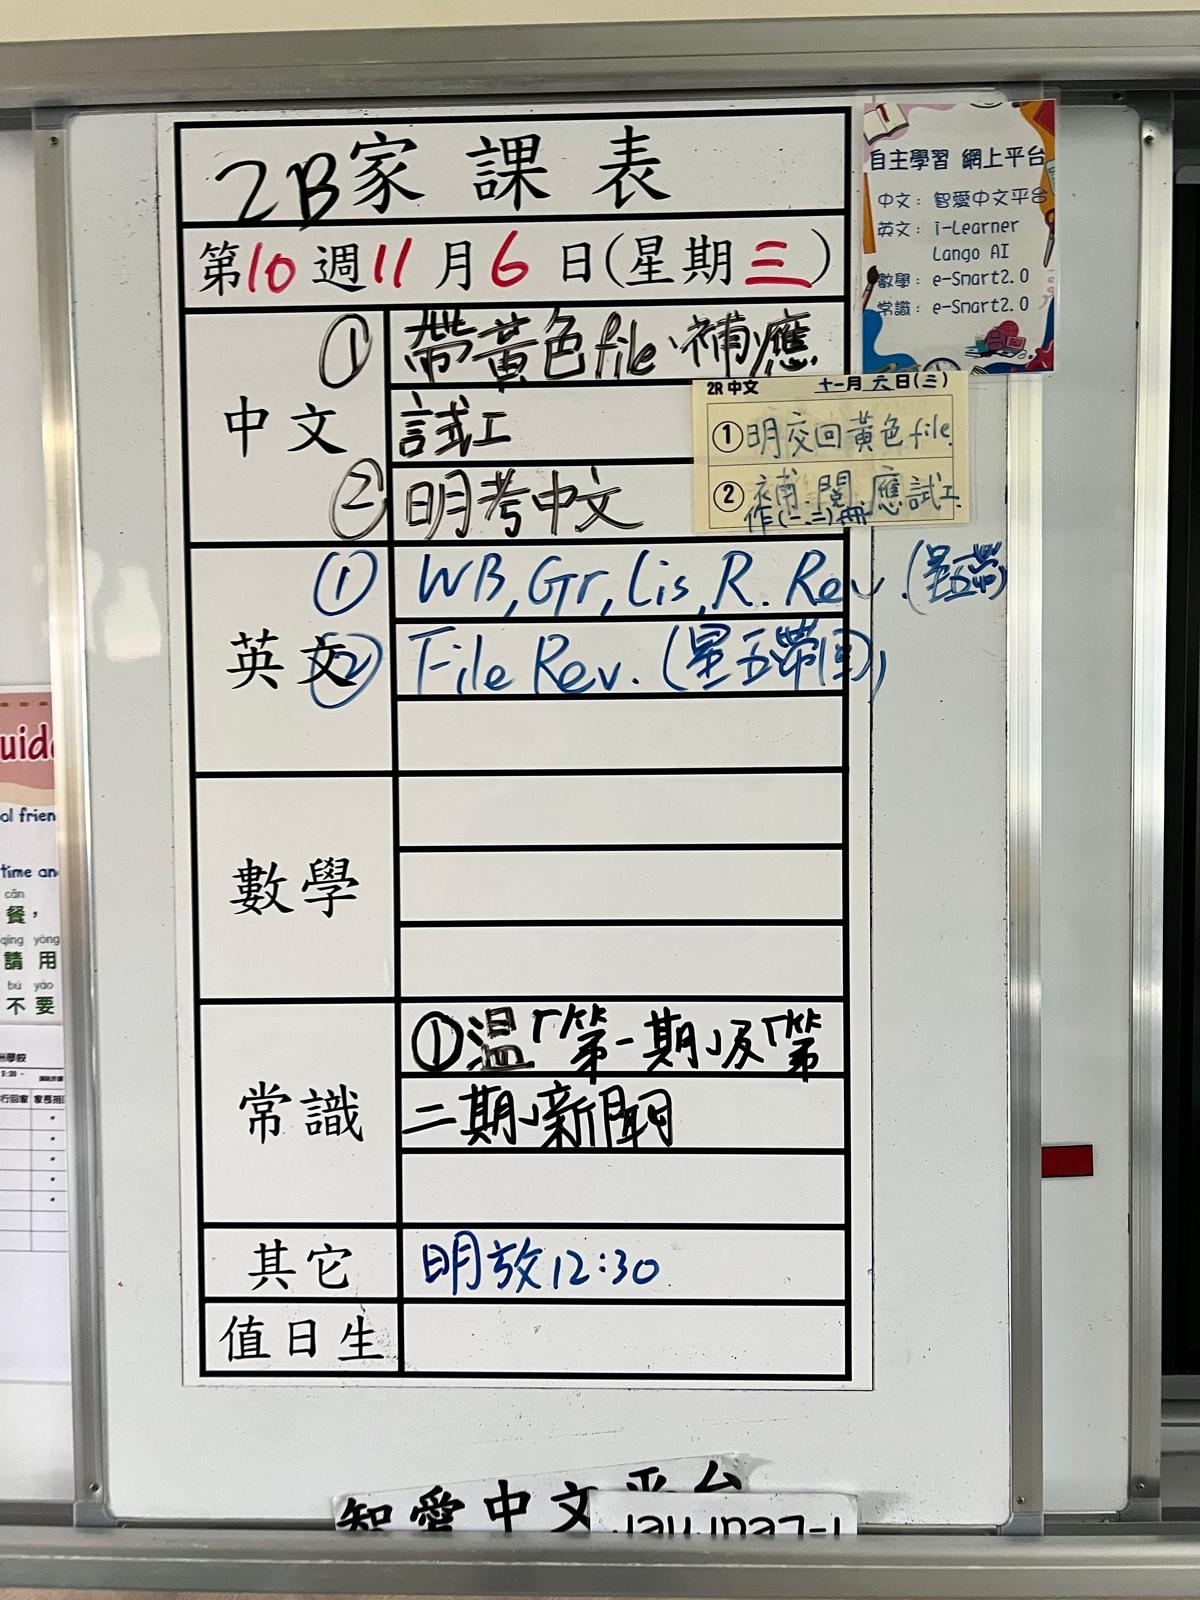 2B家課表
第10週11月6日(星期三)
中文
① 帶黃色file、補應
試工
② 明考中文
英文
① WB,Gr,Lis,R. Rev.(星五帶)
② File Rev.(星五帶回)
數學
常識
①溫「第一期」及「第
二期」新聞
其它
明放12:30
值日生
自主學習 網上平台
中文：智愛中文平台
英文：i-Learner
Lango AI
數學：e-Smart2.0
常識：e-Smart2.0
2R 中文 十一月六日(三)
① 明交回黃色file.
② 補.閱.應試工
作(一、二)冊
智愛中文平台
i-Learner
uide
ol frien
time an
cān
餐，
qǐng yòng
請用
bú yào
不要